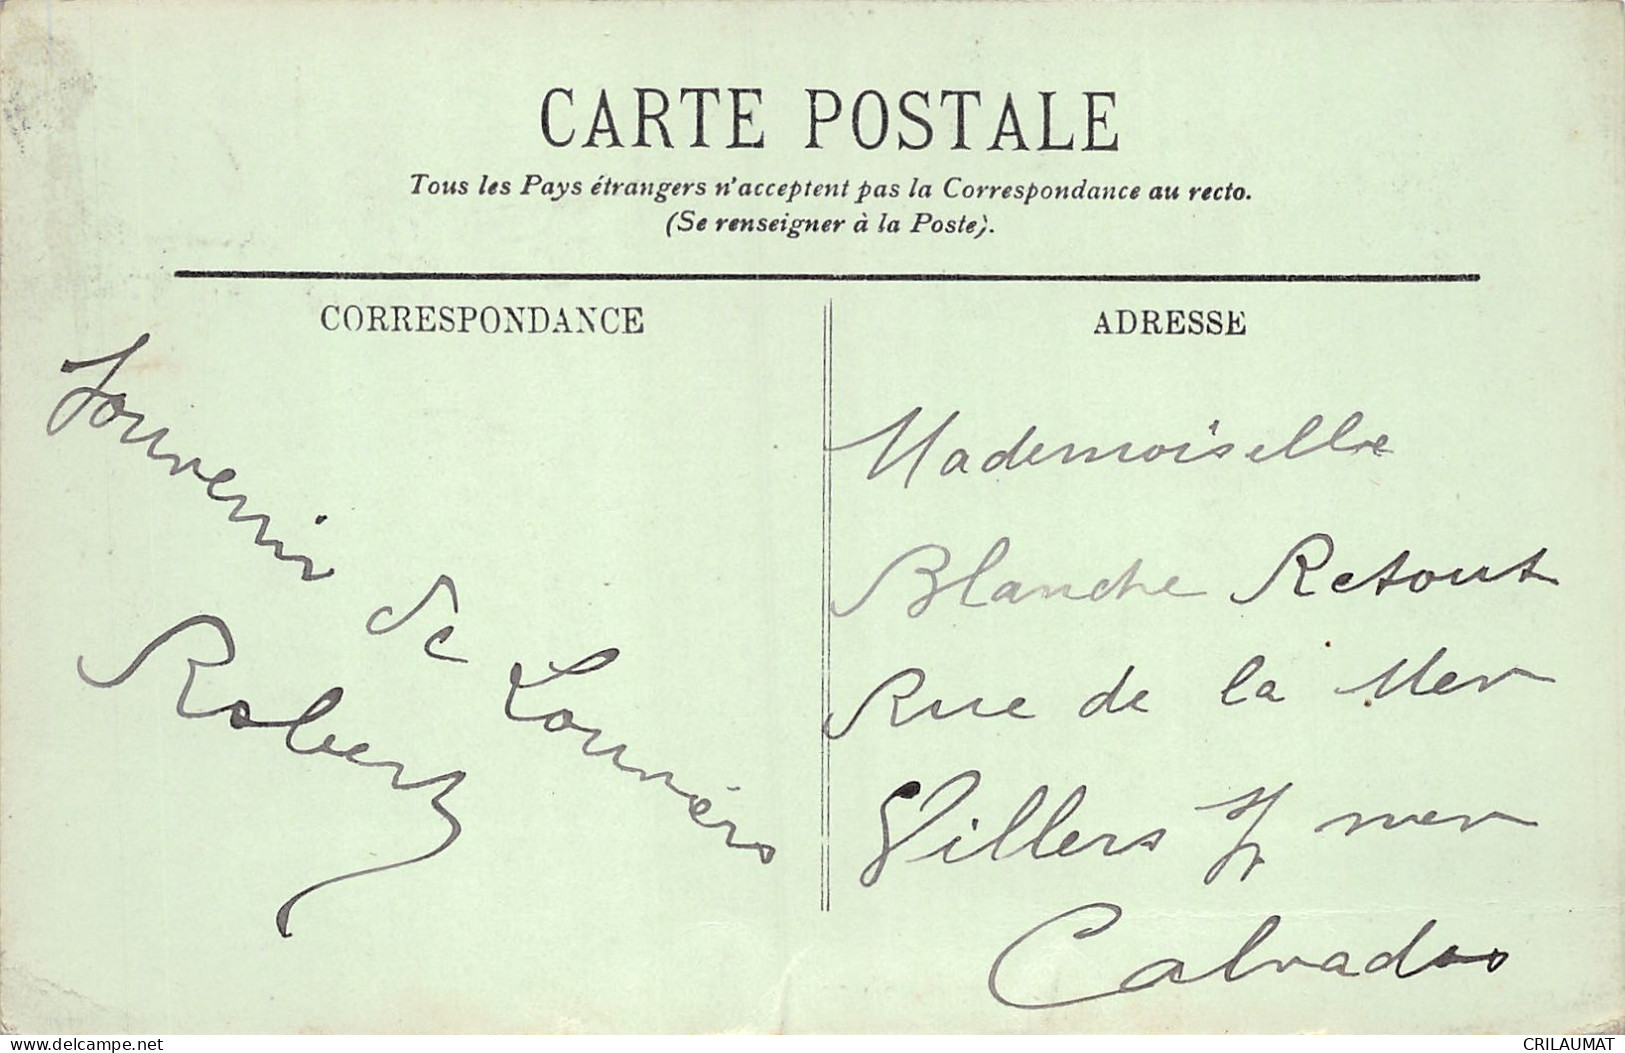 CARTE POSTALE
Tous les Pays étrangers n'acceptent pas la Correspondance au recto.
(Se renseigner à la Poste).
CORRESPONDANCE
Souvenir de Louviers
Robert
ADRESSE
Mademoiselle
Blanche Retout
Rue de la Mer
Villers s/ mer
Calvados
www.delcampe.net
CRILAUMAT